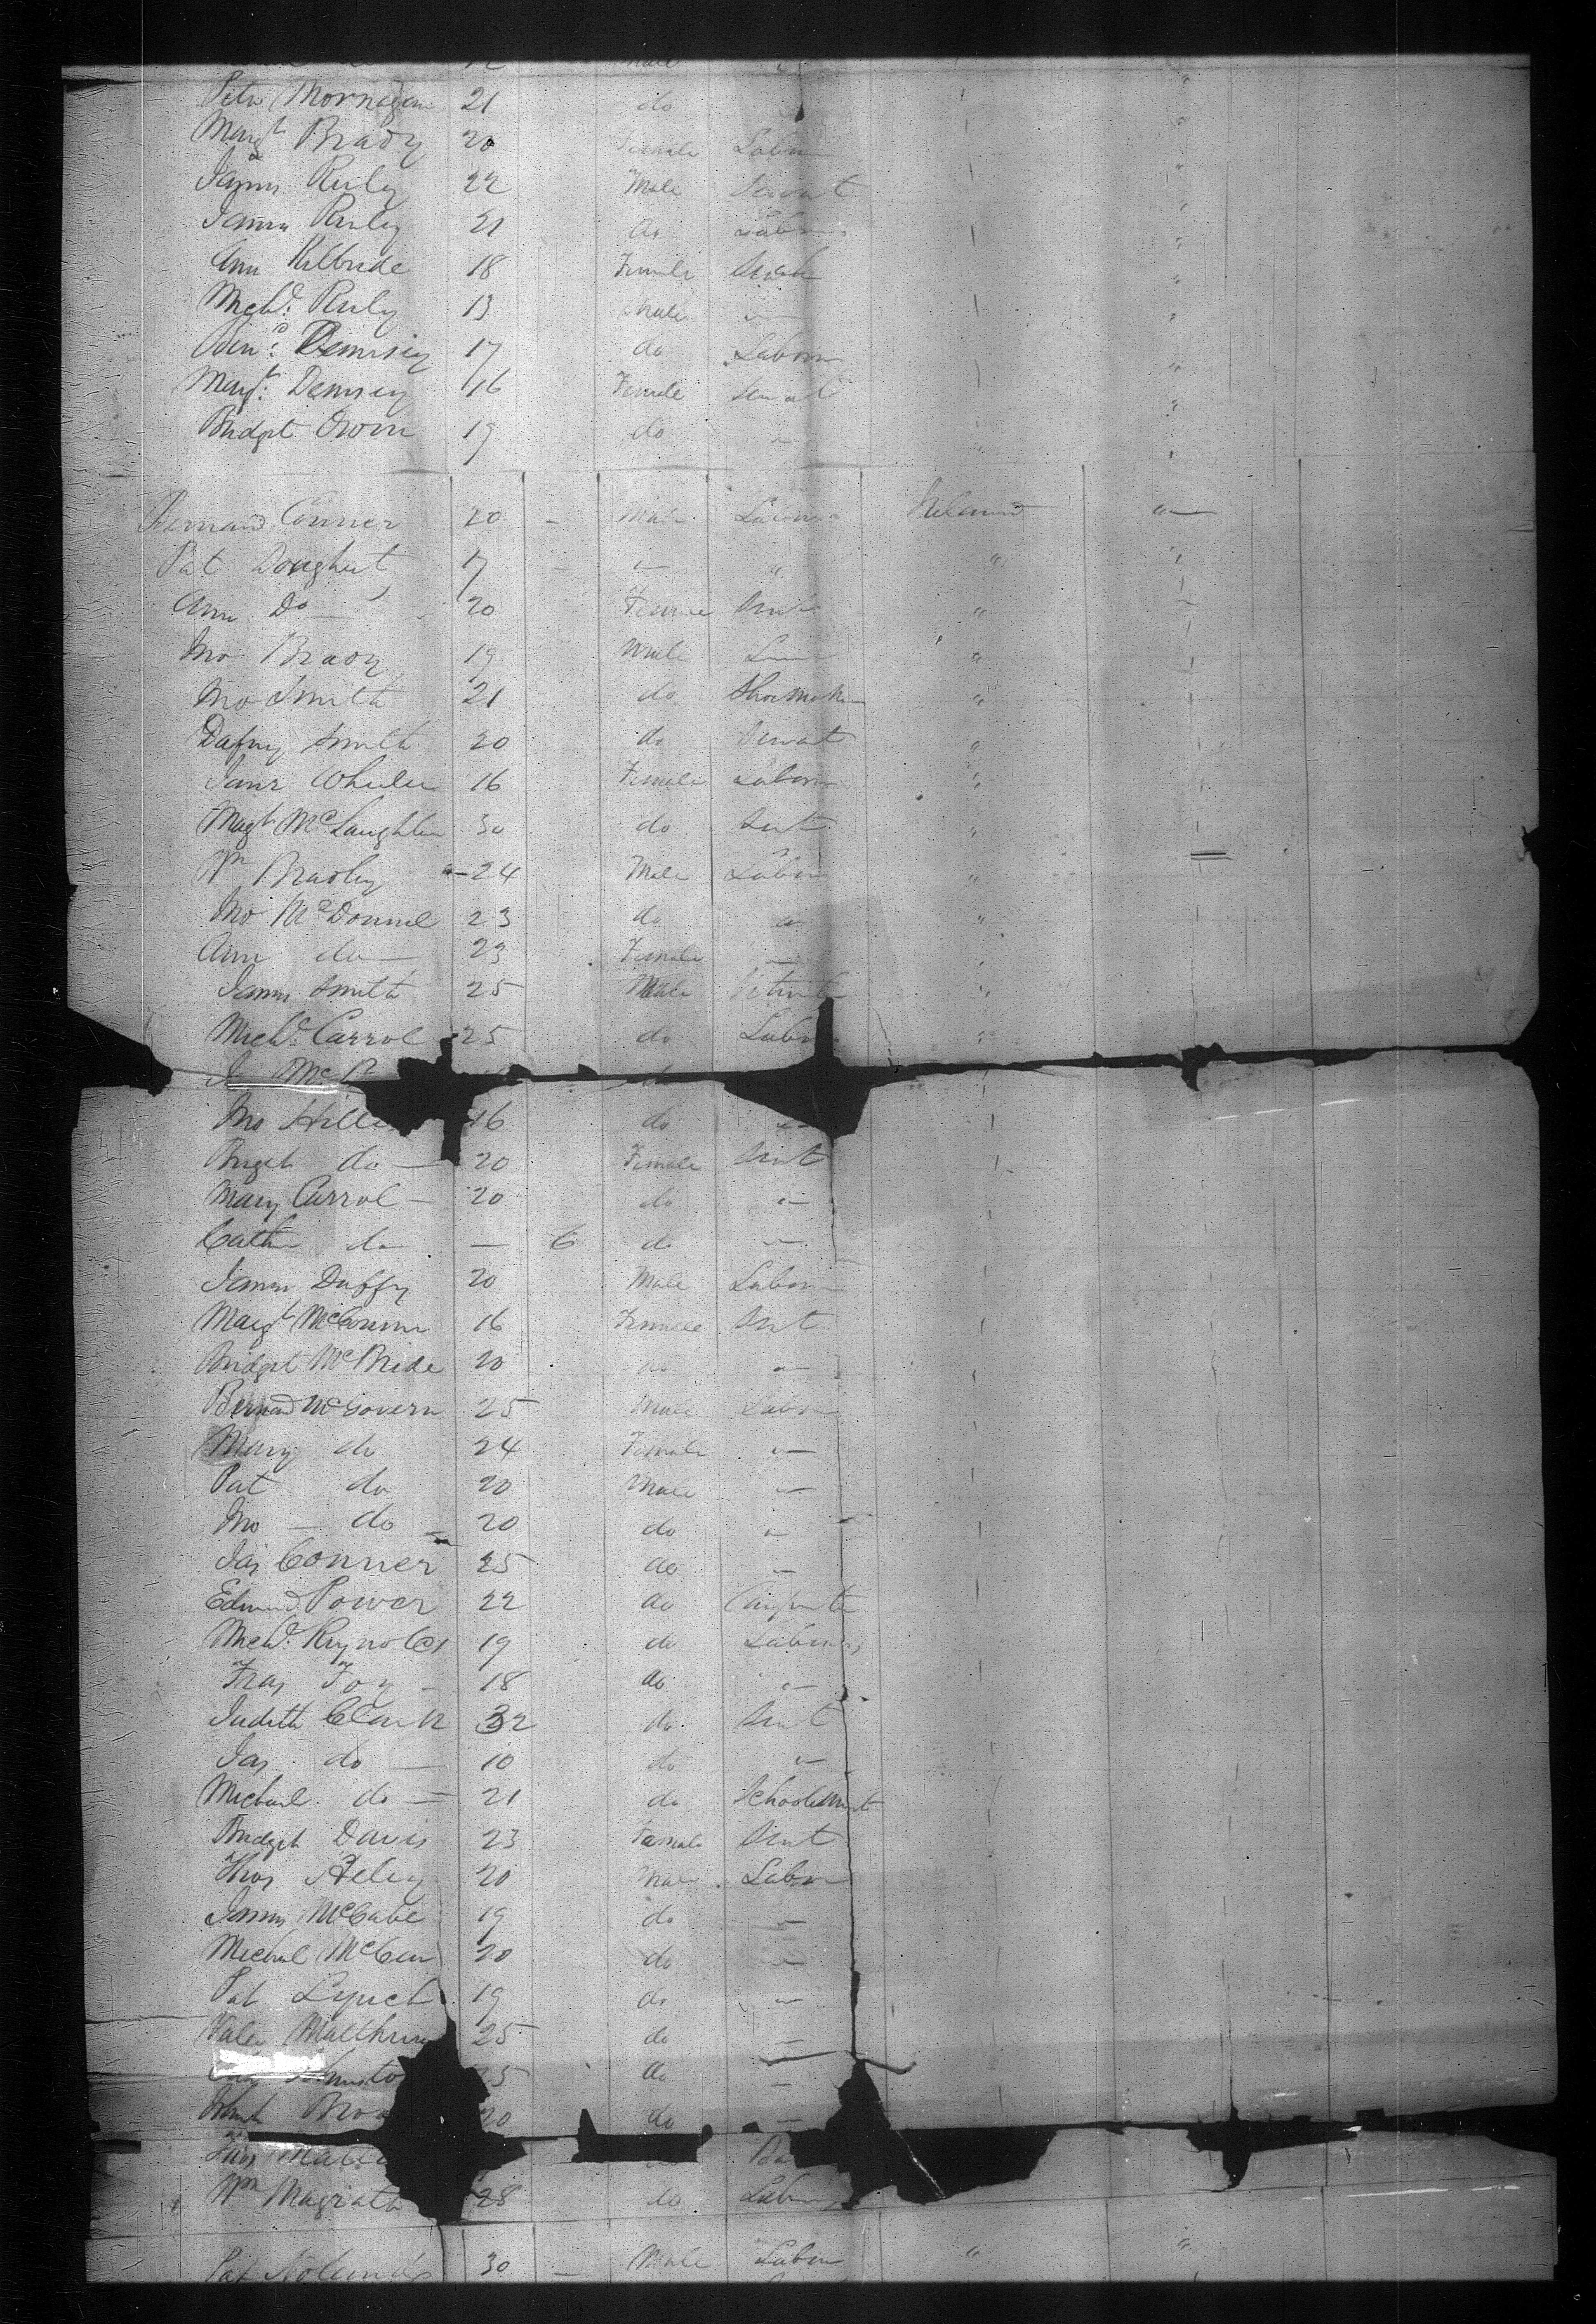 Male
Peter Mornagan 21 do "
Margt Brady 20 Female Labor
James Rily 22 Male Servant
James Rily 21 do Labour
Ann Kilbride 18 Female Servt
Michl. Rily 13 Male "
Benj. Demsey 17 do Labour
Margt. Demsey 16 Female Servant
Bridget Owen 19 do "
Bernard Conner 20 - Male Labour Ireland "
Pat Dougherty 17 - " " " "
Ann Do 20 Female Srvt "
Jno Brady 19 Male "
Jno Smith 21 do Shoemaker "
Smith 20 do Servant "
Jane Wheeler 16 Female Labour "
Magt McLaughlin 30 do Servt "
Wm Bradley 24 Male Labor "
Jno McDonnel 23 do " "
Ann do 23 Female "
James Smith 25 Male "
Michl. Carrol 25 do Labr "
Mc
Jno Hille 16 do "
Briget do 20 Female Srvt
Mary Carrol 20 do "
Cath do — 6 do "
James Duffy 20 Male Labour
Margt 16 Female Srvt
Bridget McBride 20 do "
Bernard McGovern 25 Male Labour
Mary do 24 Female "
Pat do 20 Male "
Jno do 20 do "
Jas Conner 25 do "
Edmund Power 22 do Carpenter
Michl. Reynolds 19 do Labourer
Fras Foy 18 do "
Judith Clark 32 do Srvt
Jas do 10 do "
Michael do 21 do
Bridget Davis 23 Female Srvt
Thos 20 Male Labor
James McCabe 19 do "
Michael 20 do "
Pat Lynch 19 do "
Matthews 25 do "
do "
do "
Wm Magrath 28 do Labour
Pat 30 - Male Labor " "